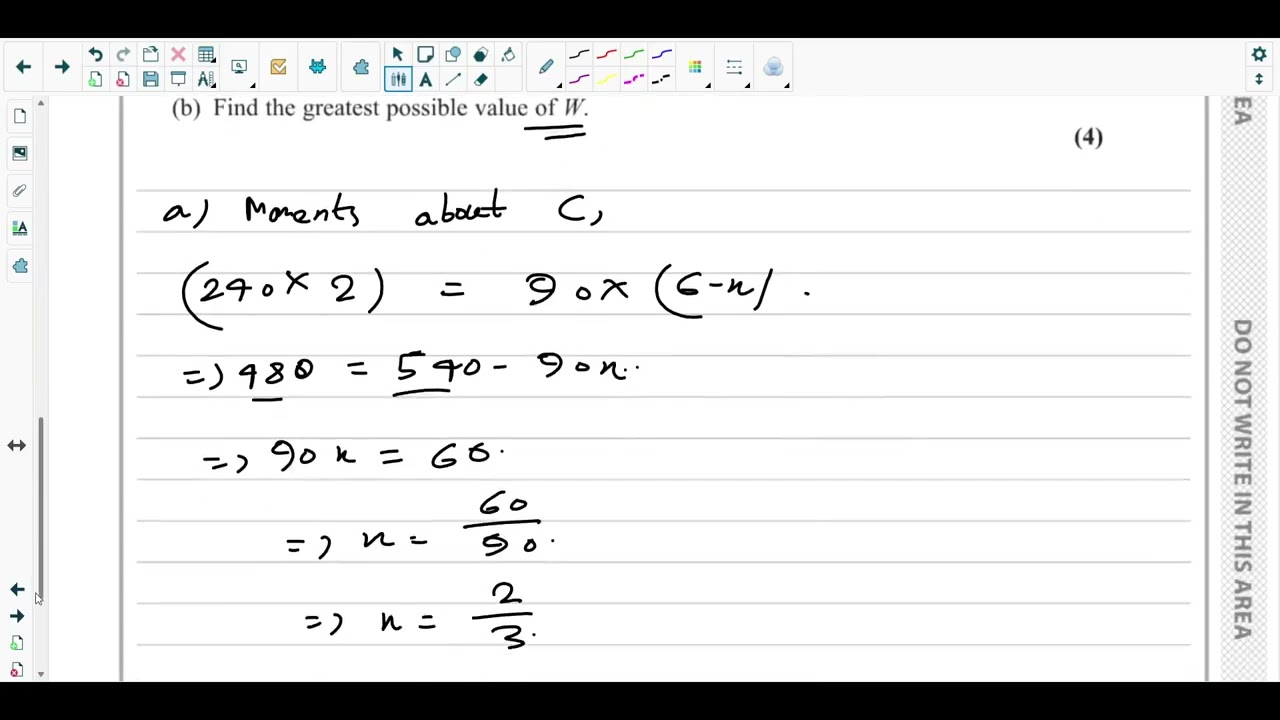 (b) Find the greatest possible value of W.
(4)
a) Moments about C,
(240 × 2) = 90 × (6-x) .
=> 480 = 540 - 90x.
=> 90x = 60.
=> x = 60/90.
=> x = 2/3.
EA
DO NOT WRITE IN THIS AREA